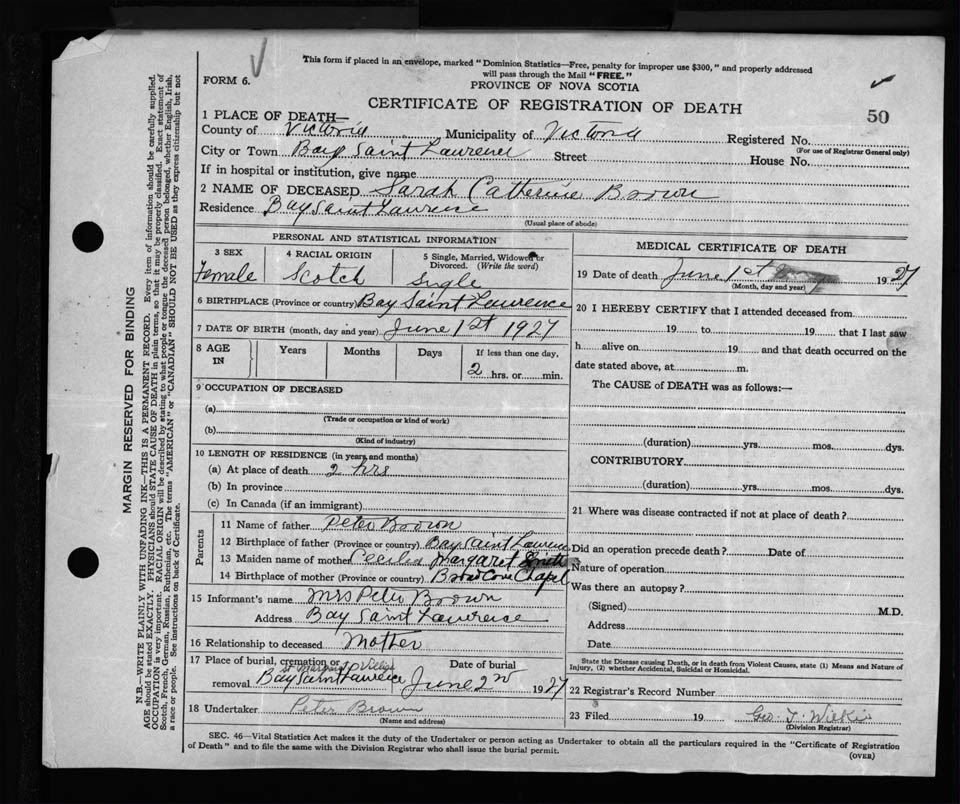 This form if placed in an envelope, marked "Dominion Statistics—Free, penalty for improper use $300," and properly addressed
will pass through the Mail "FREE."
FORM 6.
PROVINCE OF NOVA SCOTIA
CERTIFICATE OF REGISTRATION OF DEATH
50
1 PLACE OF DEATH—
County of Victoria Municipality of Victoria Registered No.
(For use of Registrar General only)
City or Town Bay Saint Lawrence Street House No.
If in hospital or institution, give name
2 NAME OF DECEASED Sarah Catherine Brown
Residence Bay Saint Lawrence
(Usual place of abode)
PERSONAL AND STATISTICAL INFORMATION
3 SEX
Female
4 RACIAL ORIGIN
Scotch
5 Single, Married, Widowed or
Divorced. (Write the word)
Single
6 BIRTHPLACE (Province or country) Bay Saint Lawrence
7 DATE OF BIRTH (month, day and year) June 1st 1927
8 AGE
IN
Years
Months
Days
If less than one day,
2 hrs. or min.
9 OCCUPATION OF DECEASED
(a)
(Trade or occupation or kind of work)
(b)
(Kind of industry)
10 LENGTH OF RESIDENCE (in years and months)
(a) At place of death 2 hrs
(b) In province
(c) In Canada (if an immigrant)
Parents
11 Name of father Peter Brown
12 Birthplace of father (Province or country) Bay Saint Lawrence
13 Maiden name of mother Cecilia Margaret Smith
14 Birthplace of mother (Province or country) Broad Cove Chapel
15 Informant's name Mrs Peter Brown
Address Bay Saint Lawrence
16 Relationship to deceased Mother
17 Place of burial, cremation or
St Margaret Village
removal Bay Saint Lawrence
Date of burial
June 2nd 1927
18 Undertaker Peter Brown
(Name and address)
MEDICAL CERTIFICATE OF DEATH
19 Date of death June 1st 1927
(Month, day and year)
20 I HEREBY CERTIFY that I attended deceased from
19 to 19 that I last saw
h alive on 19 and that death occurred on the
date stated above, at m.
The CAUSE of DEATH was as follows:—
(duration) yrs. mos. dys.
CONTRIBUTORY
(duration) yrs. mos. dys.
21 Where was disease contracted if not at place of death?
Did an operation precede death? Date of
Nature of operation
Was there an autopsy?
(Signed) M.D.
Address
Date
State the Disease causing Death, or in death from Violent Causes, state (1) Means and Nature of
Injury, (2) whether Accidental, Suicidal or Homicidal.
22 Registrar's Record Number
23 Filed 19 Geo. T. Wilkie
(Division Registrar)
SEC. 46—Vital Statistics Act makes it the duty of the Undertaker or person acting as Undertaker to obtain all the particulars required in the "Certificate of Registration
of Death" and to file the same with the Division Registrar who shall issue the burial permit.
(OVER)
MARGIN RESERVED FOR BINDING
N.B.—WRITE PLAINLY WITH UNFADING INK—THIS IS A PERMANENT RECORD. Every item of information should be carefully supplied.
AGE should be stated EXACTLY. PHYSICIANS should STATE CAUSE OF DEATH in plain terms, so that it may be properly classified. Exact statement of
OCCUPATION is very important. RACIAL ORIGIN will be described by stating to what people or tongue the deceased person belonged, whether English, Irish,
Scotch, French, German, Russian, Ruthenian, etc. The terms "AMERICAN" or "CANADIAN" SHOULD NOT BE USED as they express citizenship but not
a race or people. See instructions on back of Certificate.